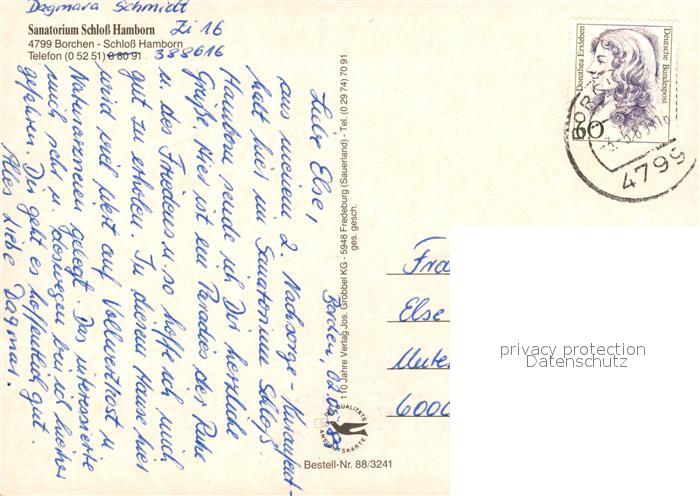 Dagmara Schmidt
Zi 16
Sanatorium Schloß Hamborn
4799 Borchen - Schloß Hamborn
Telefon (0 52 51) 3 80 91 388616
Borchen, 02.
Liebe Else,
aus meinem 2. Nachsorge-Kuraufent-
halt hier im Sanatorium Schloß
Hamborn sende ich Dir herzliche
Grüße. Hier ist ein Paradies der Ruhe
u. des Friedens u. so hoffe ich mich
gut zu erholen. In diesem Haus hier
wird viel Wert auf Vollwertkost u.
Naturarznei gelegt. Das interessierte
mich sehr u. deswegen bin ich hierher
gefahren. Dir geht es hoffentlich gut.
Alles Liebe Dagmar.
110 Jahre Verlag Jos. Grobbel KG - 5948 Fredeburg (Sauerland) - Tel. (0 29 74) 70 91
ges. gesch.
QUALITÄTS
ANSICHTSKARTE
Bestell-Nr. 88/3241
Dorothea Erxleben
Deutsche Bundespost
60
BORCHEN
4799
Fra
Else
6000
privacy protection
Datenschutz